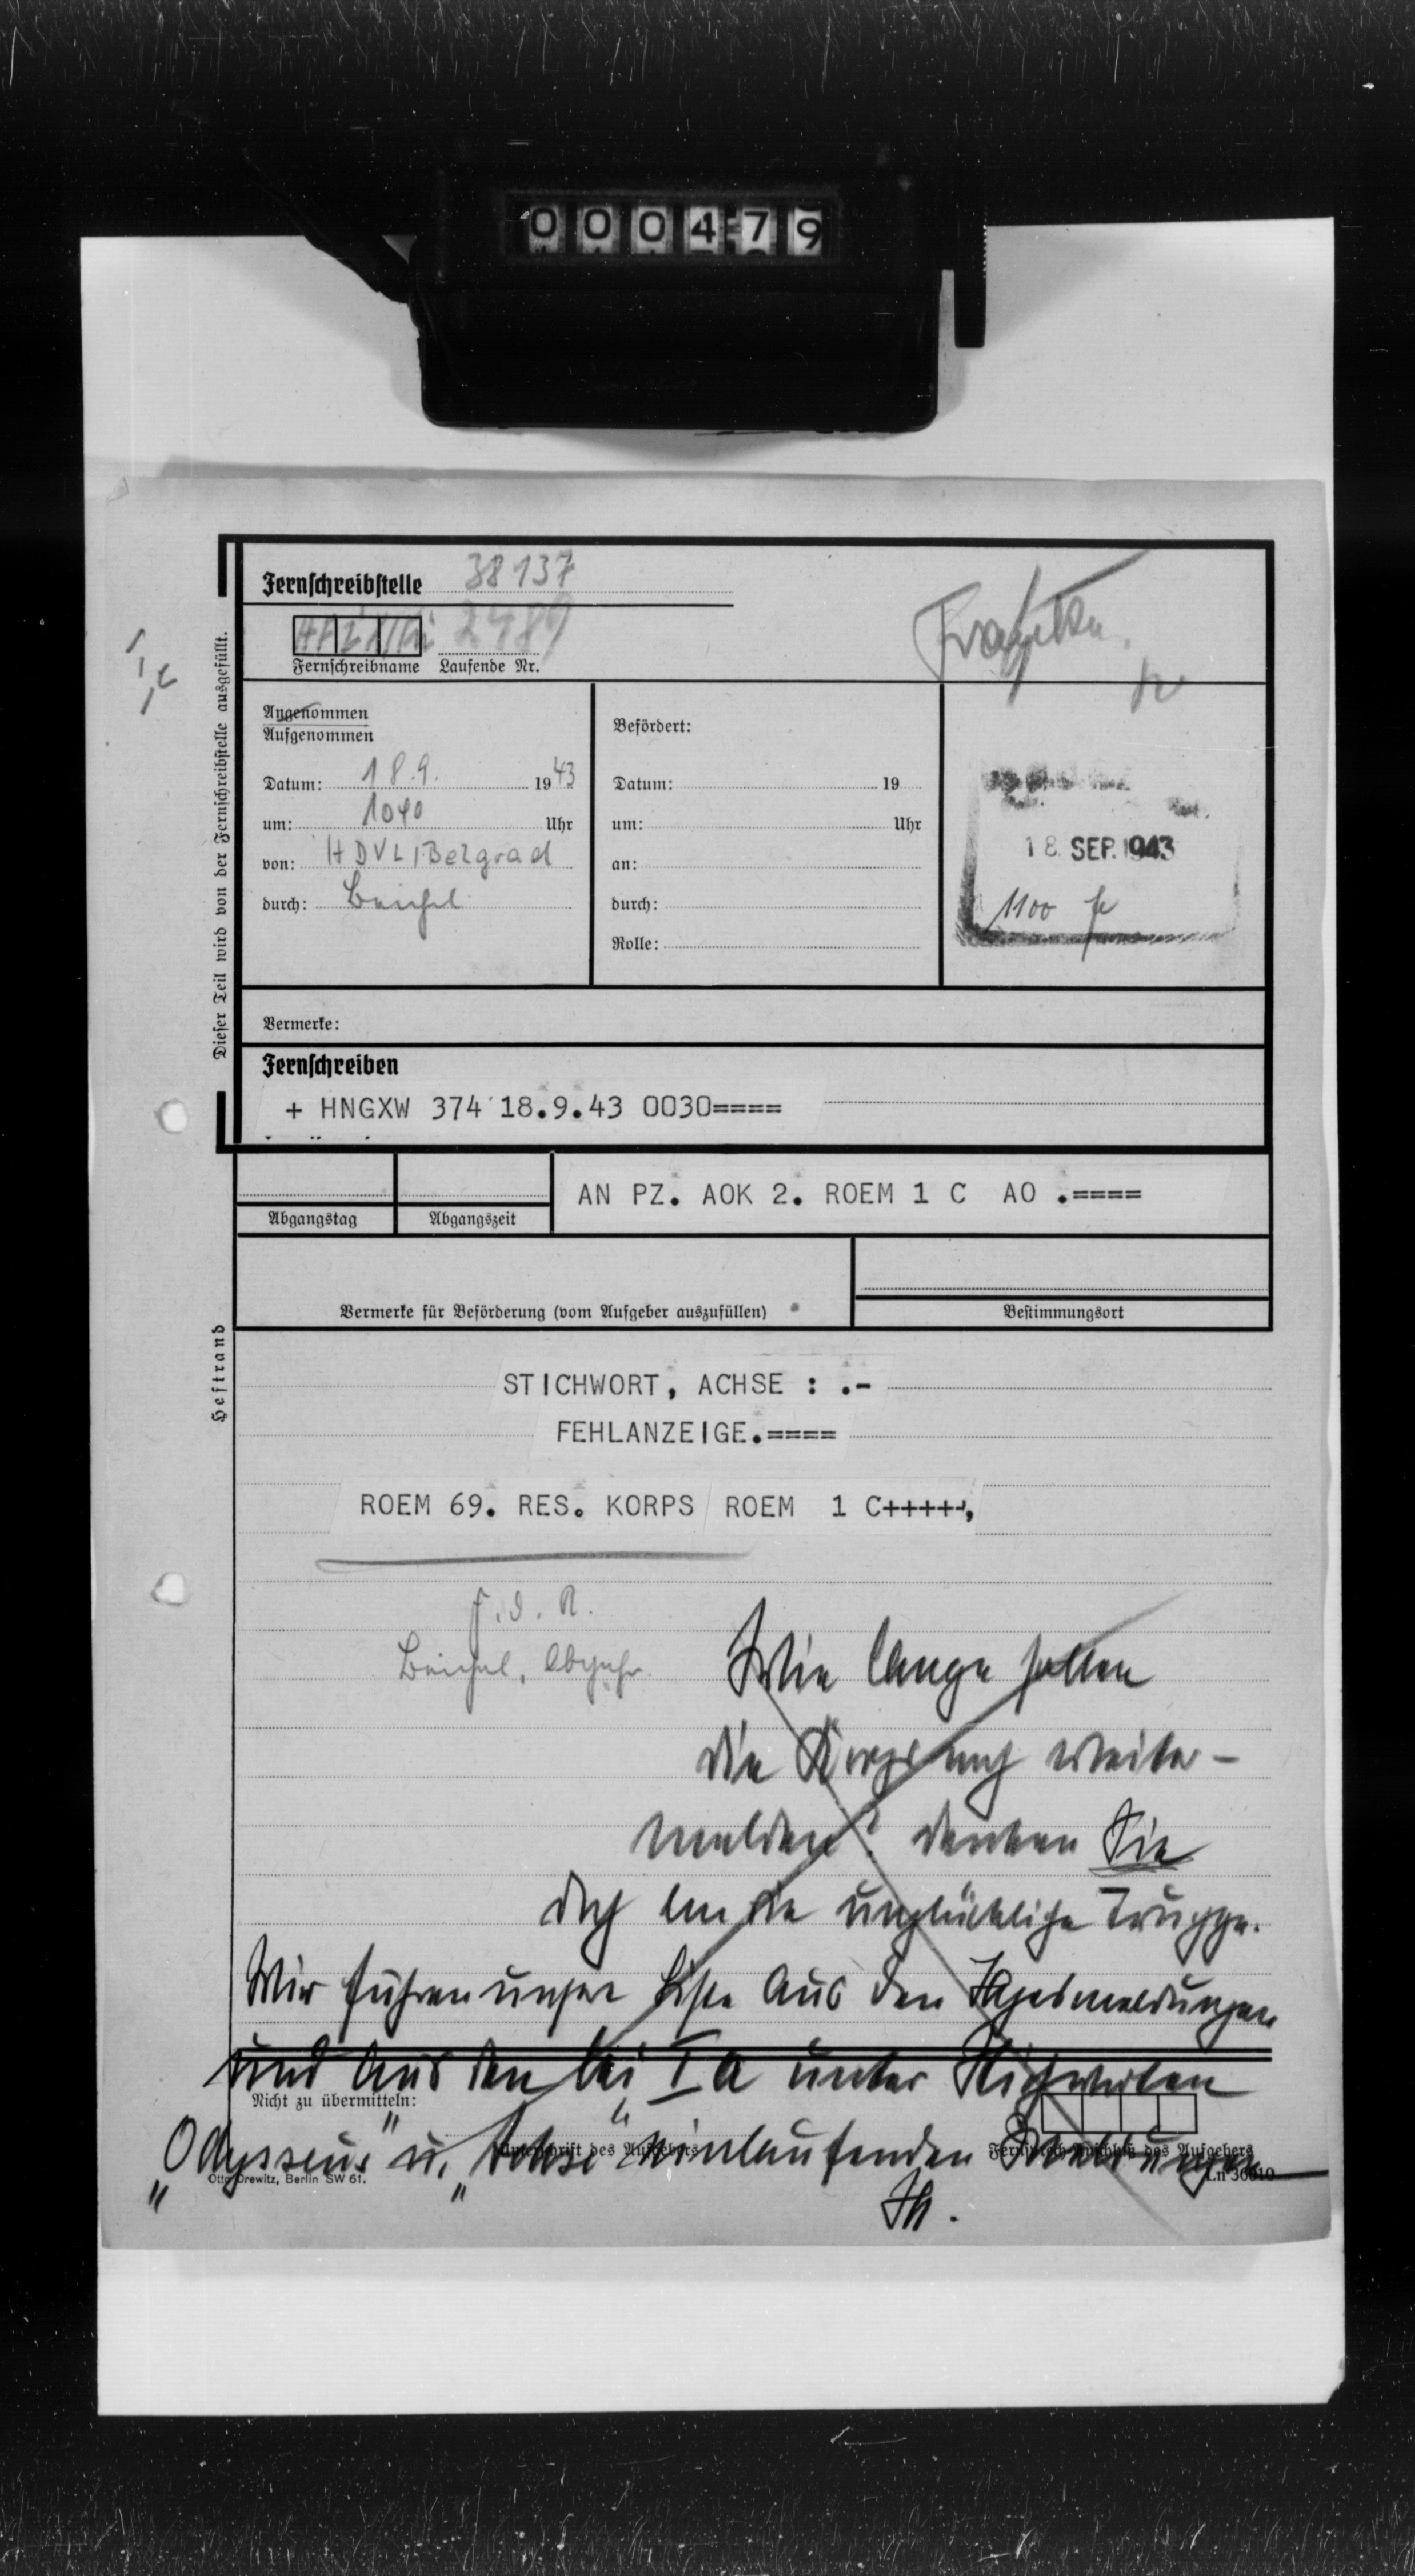 000479
Fernschreibstelle 38137
2489
Fernschreibname Laufende Nr.
I c
Dieser Teil wird von der Fernschreibstelle ausgefüllt.
Angenommen
Aufgenommen
Datum: 18.9. 1943
um: 1040 Uhr
von: HDVL/Belgrad
durch:
Befördert:
Datum: 19
um: Uhr
an:
durch:
Rolle:
18. SEP. 1943
1100
Vermerke:
Fernschreiben
+ HNGXW 374 18.9.43 0030====
AN PZ. AOK 2. ROEM 1 C AO .====
Abgangstag Abgangszeit
Vermerke für Beförderung (vom Aufgeber auszufüllen)
Bestimmungsort
Heftrand
STICHWORT, ACHSE : .-
FEHLANZEIGE.====
ROEM 69. RES. KORPS ROEM 1 C+++++,
F.d.R.
Wie lange sollen
die Korps noch weiter-
melden? Denken Sie
doch an die unglückliche Truppe.
Wir führen unsere Liste aus den Tagesmeldungen
und aus den bei Ia unter Stichworten
Nicht zu übermitteln:
„Odysseus" u. „Achse" einlaufenden Meldungen
Unterschrift des Aufgebers
Fernsprech-Anschluß des Aufgebers
Otto Drewitz, Berlin SW 61.
Ln 30010
Th.